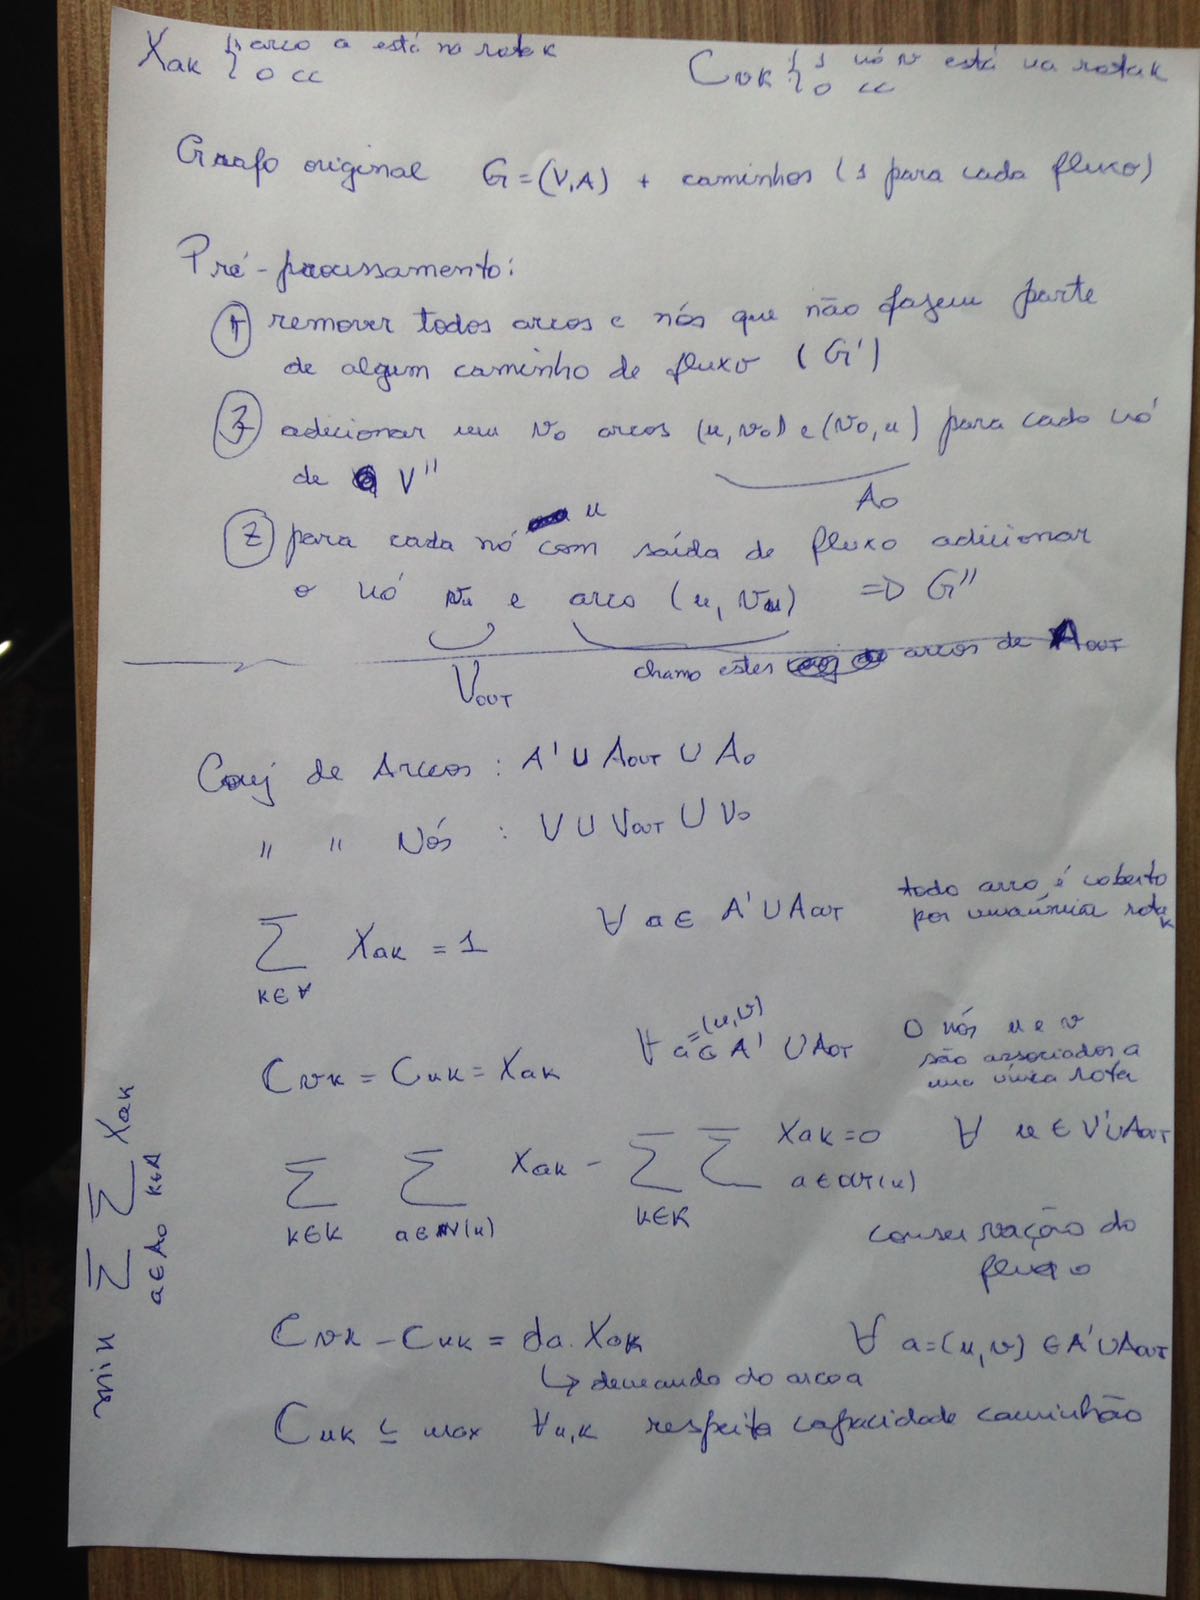 Xak { 1 arco a está na rota k
0 cc
Cvk { 1 nó v está na rota k
0 cc
Grafo original G=(V,A) + caminhos (1 para cada fluxo)
Pré-processamento:
① remover todos arcos e nós que não fazem parte
de algum caminho de fluxo (G')
③ adicionar um v₀ arcos (u,v₀) e (v₀,u) para cada nó
de V''
A₀
② para cada nó u com saída de fluxo adicionar
o nó vu e arco (u, vu) => G''
VOUT
chamo estes arcos de AOUT
Conj de Arcos : A' ∪ AOUT ∪ A₀
" " Nós : V ∪ VOUT ∪ V₀
∑ k∈∀ Xak = 1 ∀ a ∈ A' ∪ AOUT
todo arco é coberto
por uma única rota k
Cvk = Cuk = Xak ∀ a=(u,v) ∈ A' ∪ AOT
O nós u e v
são associados a
uma única rota
∑ k∈K ∑ a∈IN(u) Xak - ∑ k∈K ∑ a∈OUT(u) Xak = 0 ∀ u ∈ V' ∪ AOUT
conservação do
fluxo
Cvk - Cuk = da. Xak ∀ a=(u,v) ∈ A' ∪ AOUT
↳ demanda do arco a
Cuk ≤ max ∀u,k respeita capacidade caminhão
min ∑ a∈A₀ ∑ k∈A Xak